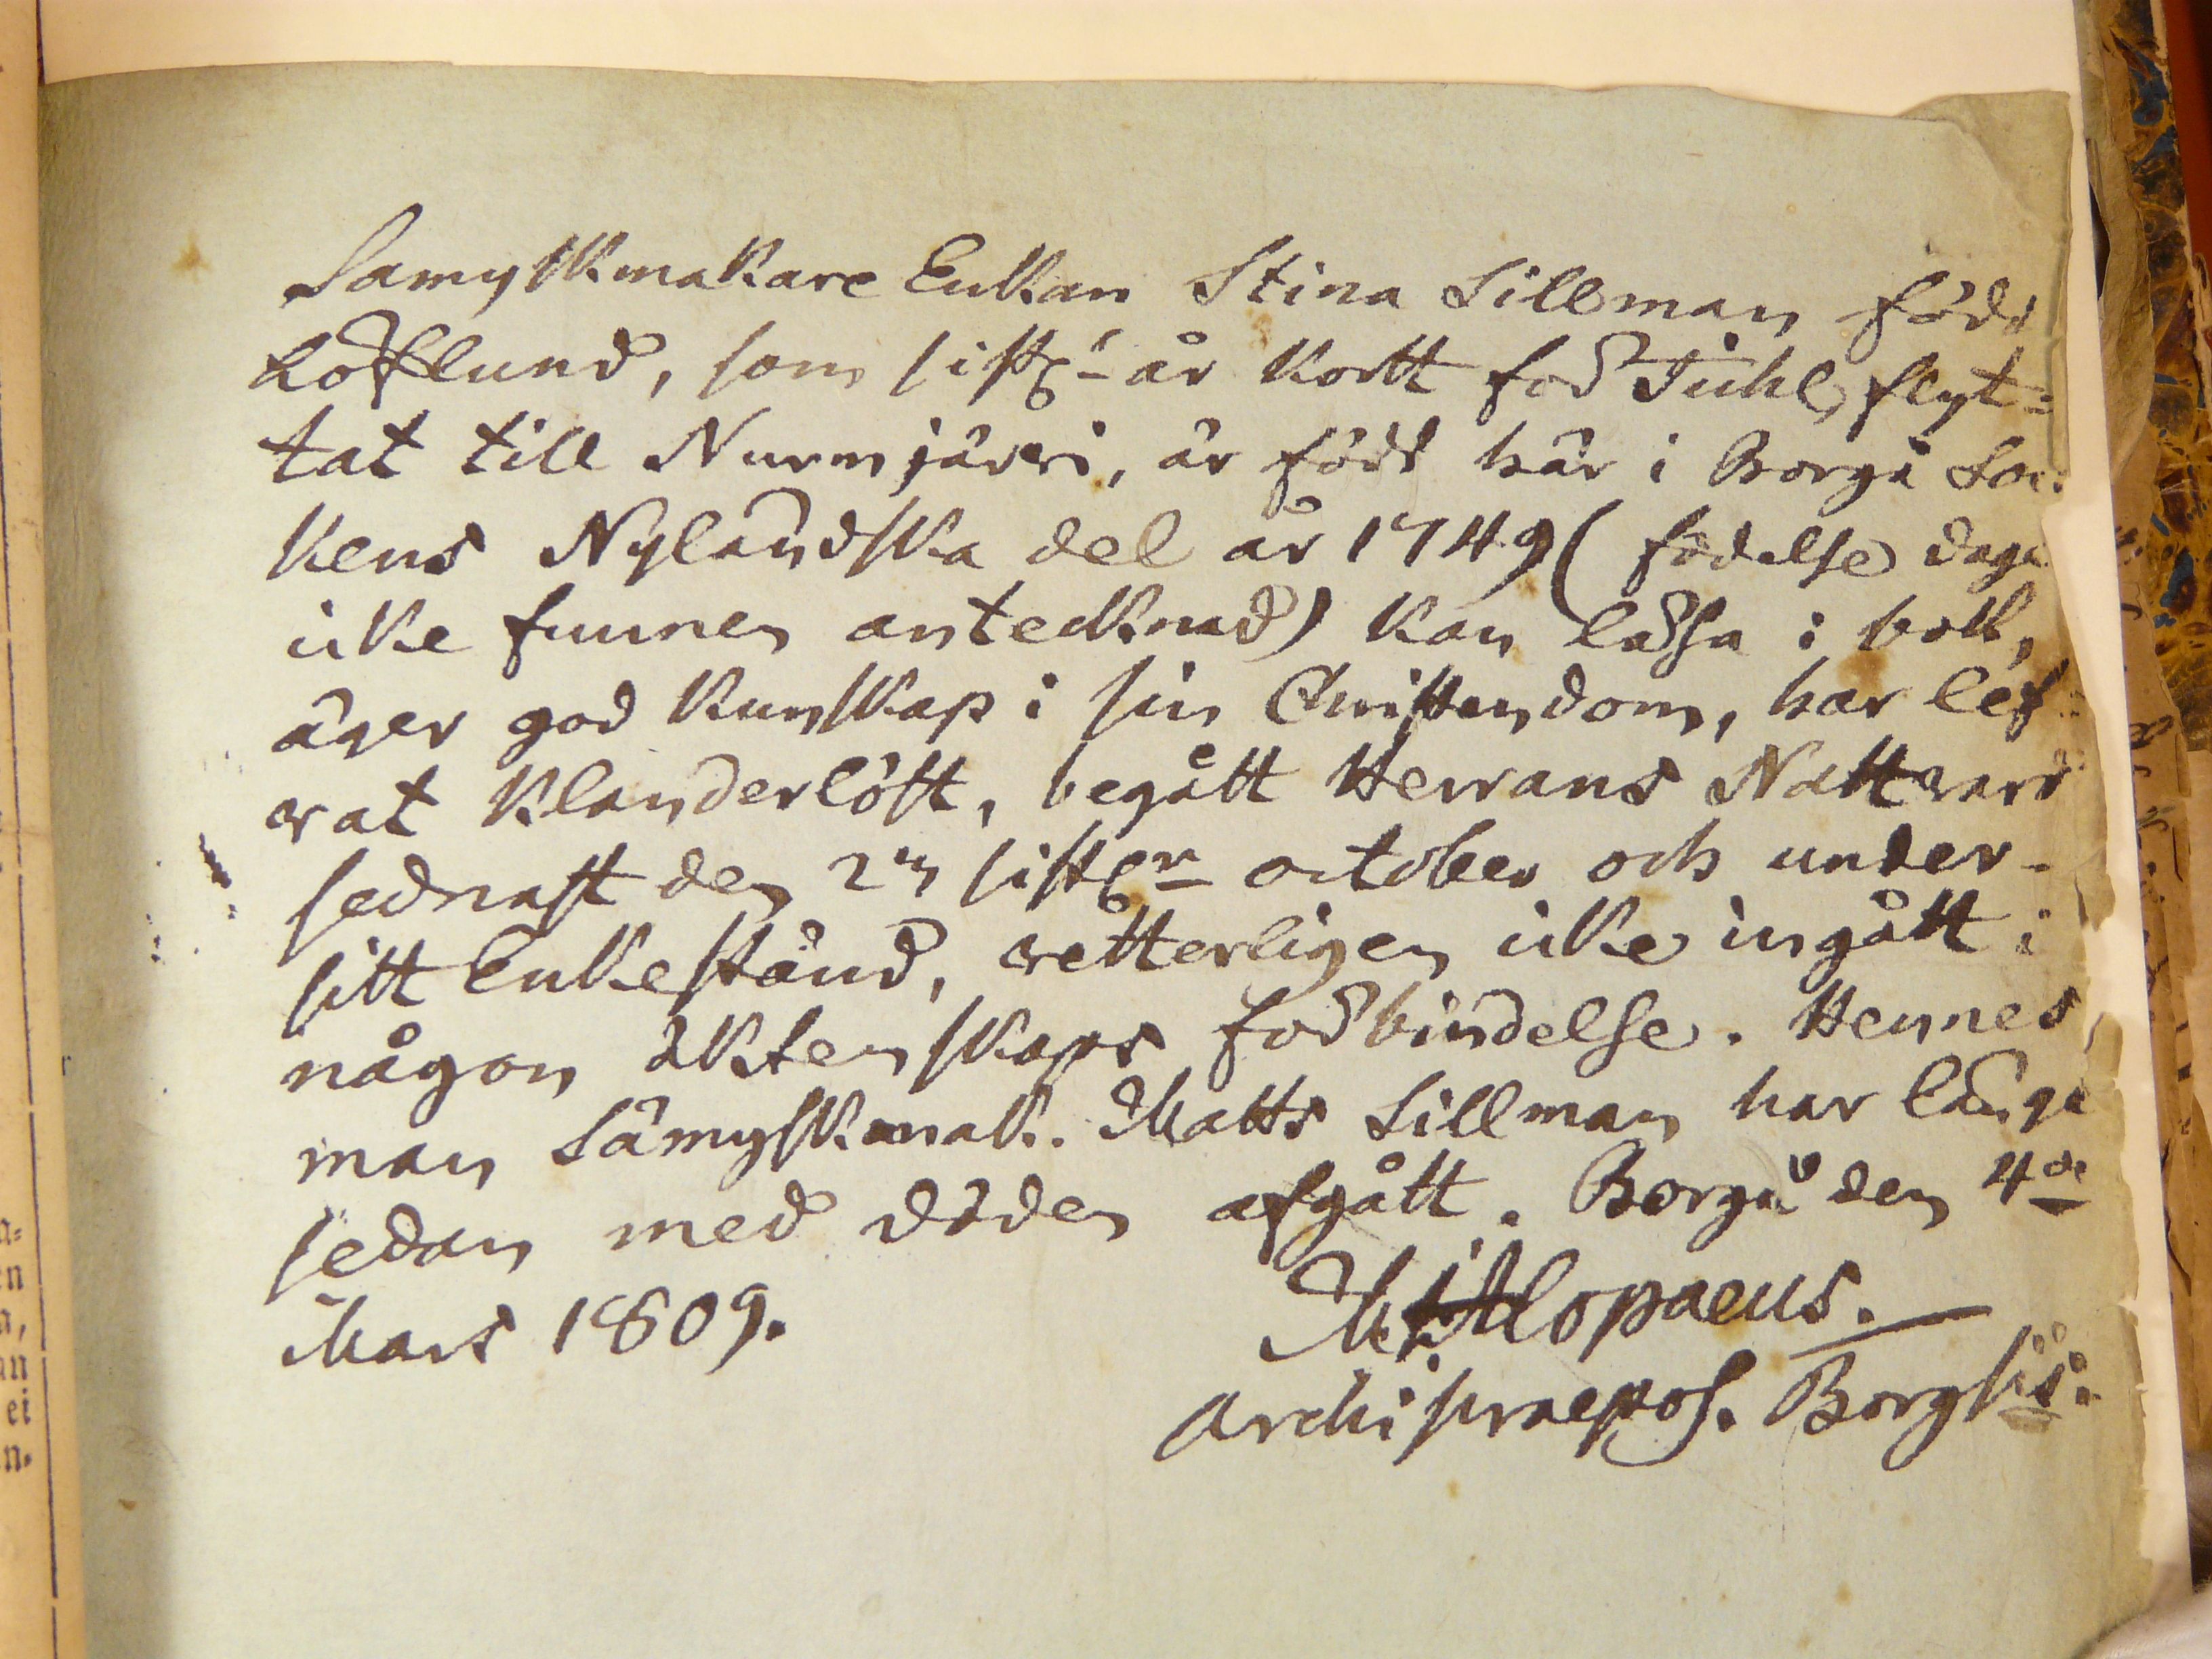 Samyskmakare Enkan Stina Sillman född
Löflund, som sistl. år kort för Juhl, flyt=
tat till Nurmjärvi, är född här i Borgå Soc
kens Nylandska del år 1749 (födelse dage
icke funnen antecknad) kan läsa i bok,
äger god kunskap i sin Christendom, har lef
wat klanderlöst, begått Herrans Nattward
sednast den 2n sistl. october och under
sitt Enkestånd, wetterligen icke ingått i
någon äktenskaps förbindelse. Hennes
man Sämyskmak. Matts Sillman har länge
sedan med döden afgått. Borgå den 4de
Mars 1809.
M. J. Alopaeus.
Archipraepos. Borgsis.
n=
en
n,
an
ei
n.